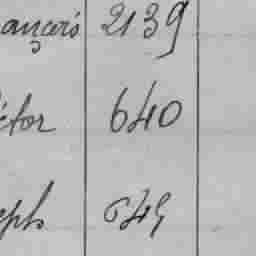 ançois 2139
ctor 640
eph 645